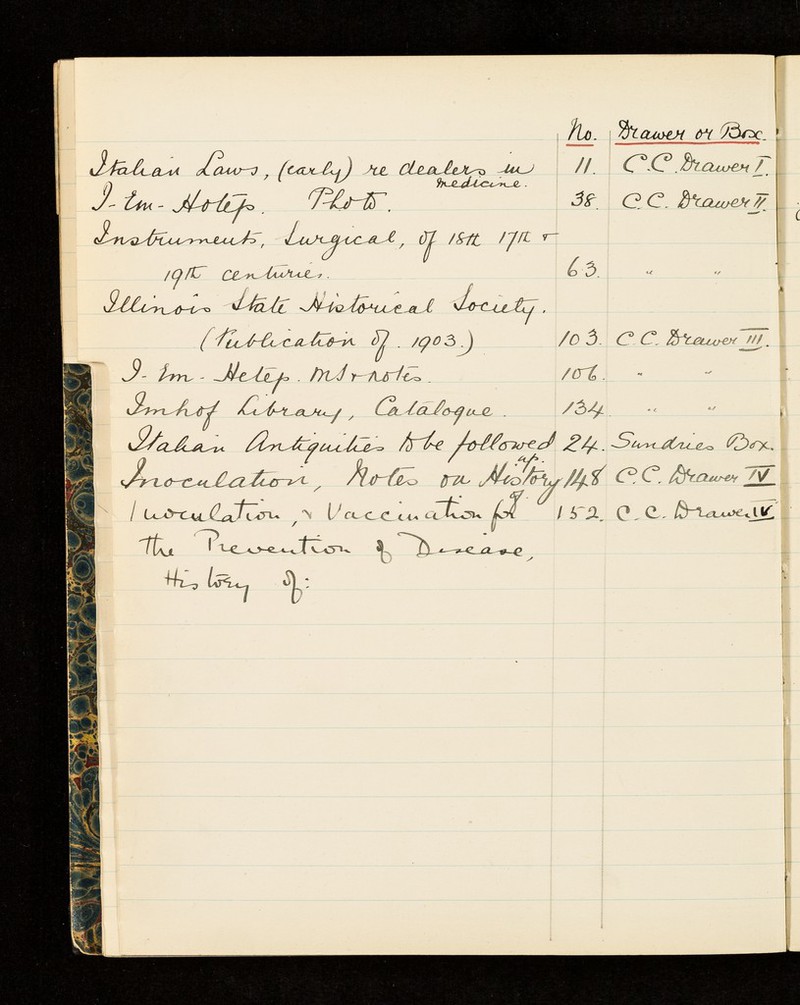 No. Drawer or Box.
Italian Laws, (early) re dealers in medicine. 11. C.C. Drawer I.
I-Em-Hotep. Photo. 38. C.C. Drawer II.
Instruments, Surgical, of 18th 17th &
19th centuries. 63. " "
Illinois State Historical Society.
(Publication of. 1903.) 103. C.C. Drawer III.
I-Em-Hetep. MS & notes. 106. " "
Imhof Library, Catalogue. 134 " "
Italian Antiquities to be followed up. 24. Sundries Box.
Inoculation, Notes on History of 148 C.C. Drawer IV
Inoculation, & Vaccination for 152. C.C. Drawer IV
the Prevention of Disease,
History of: